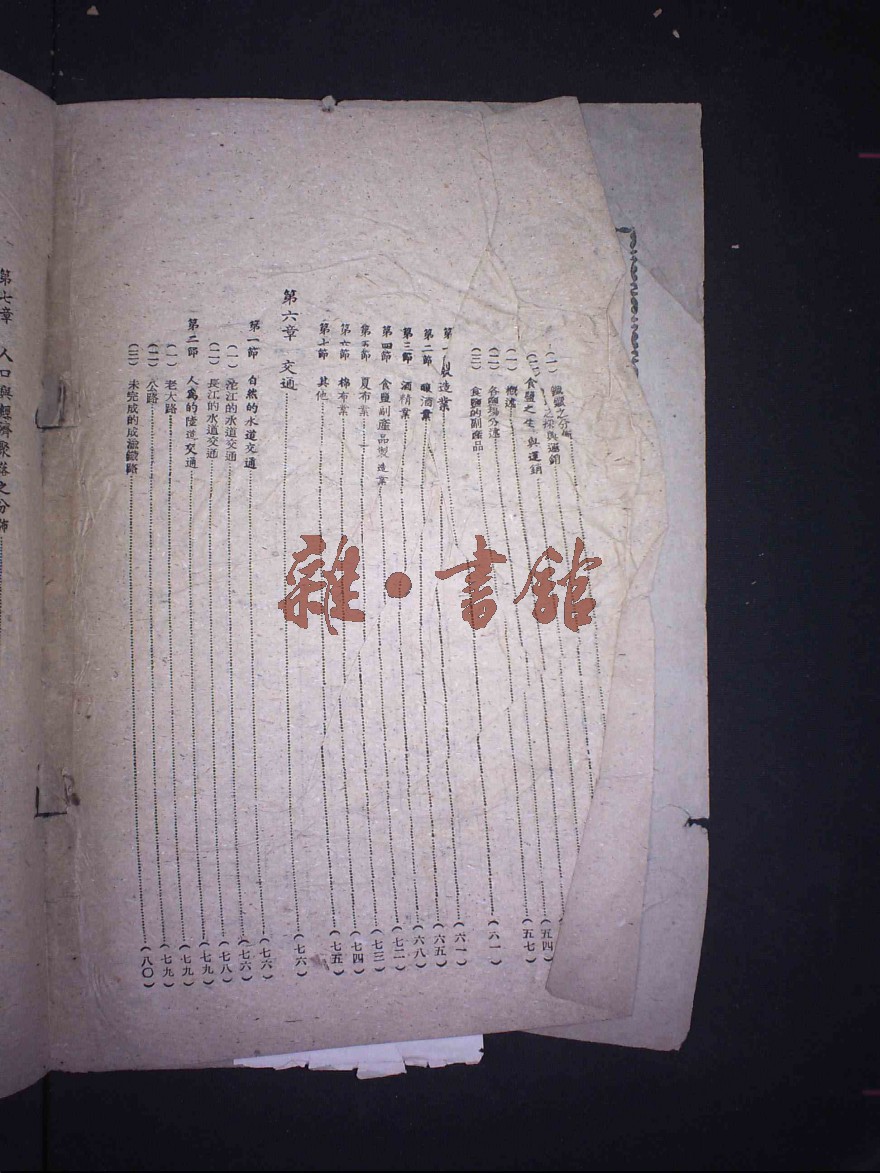 (一)鐵鑛之分佈
之採與運銷……(五四)
(二)食鹽之生 與運銷……(五七)
(一)概述
(二)各鹽場分述
(三)食鹽的副產品……(六一)
第 製造業……(六一)
第二節 釀酒業……(六五)
第三節 酒精業……(六八)
第四節 食鹽副產品製造業……(七二)
第五節 夏布業……(七三)
第六節 棉布業……(七四)
第七節 其他……(七五)
第六章 交通……(七六)
第一節 自然的水道交通……(七六)
(一)沱江的水道交通……(七六)
(二)長江的水道交通……(七八)
第二節 人爲的陸道交通……(七九)
(一)老大路……(七九)
(二)公路……(七九)
(三)未完成的成渝鐵路……(八〇)
第七章 人口與經濟聚落之分佈
雜·書館